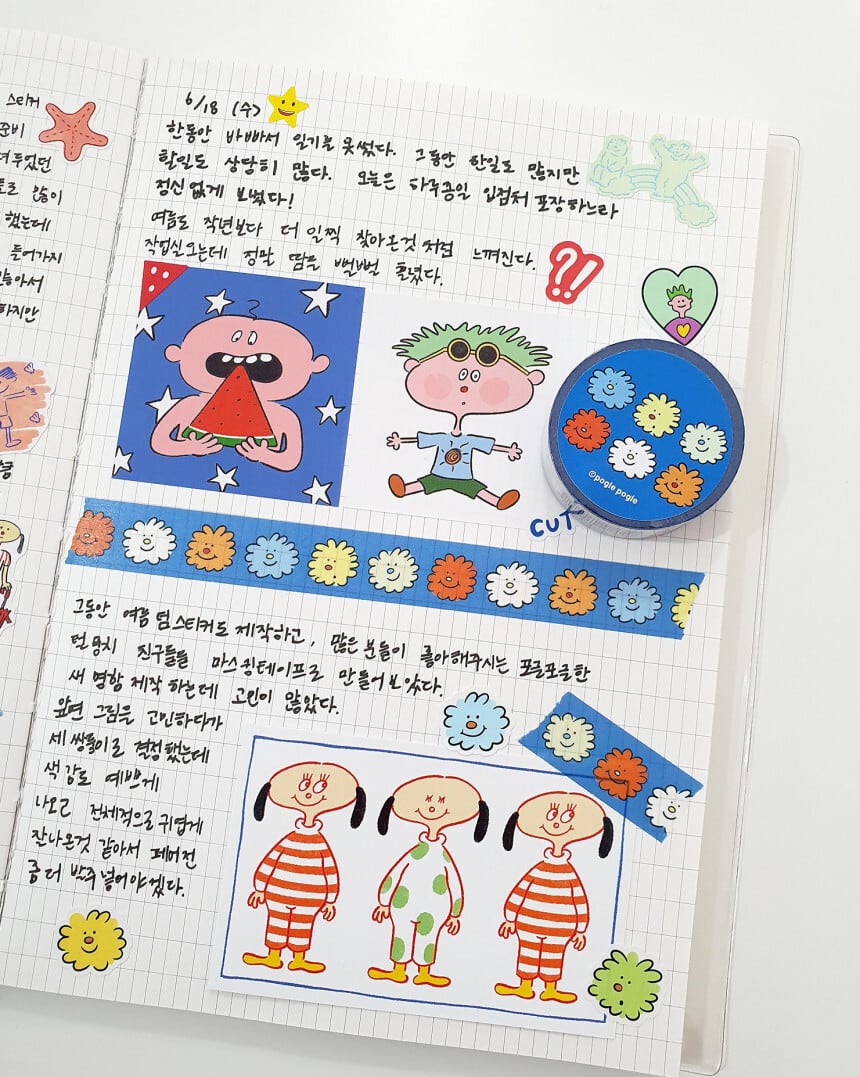 스티커
준비
많이
했는데
들어가지
하지만
6/18 (수)
한동안 바빠서 일기를 못썼다. 그동안 한일도 많지만
할일도 상당히 많다. 오늘은 하루종일 입점처 포장하느라
정신없게 보냈다!
여름도 작년보다 더 일찍 찾아온것 처럼 느껴진다.
작업실오는데 정말 땀을 뻘뻘 흘렸다.
?!
©pogle pogle
CUT
그동안 여름 덤스티커도 제작하고, 많은 분들이 좋아해주시는 포글포글한
털뭉치 친구들을 마스킹테이프로 만들어보았다.
새 명함 제작하는데 고민이 많았다.
앞면 그림은 고민하다가
세 쌍둥이로 결정했는데
색감도 예쁘게
나오고 전체적으로 귀엽게
잘나온것 같아서 페어전
좀더 박주 넣어야겠다.